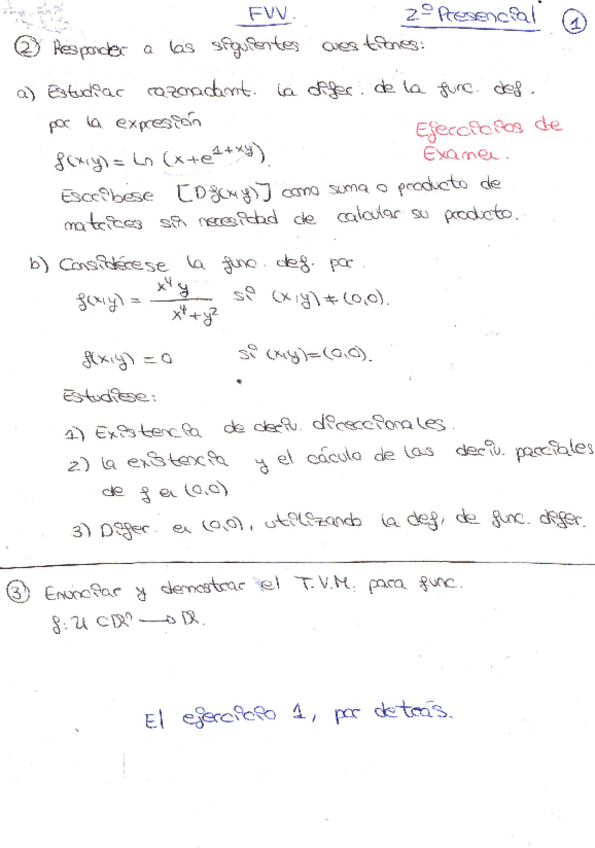 FVV. 2º Presencial ①
② Responder a las siguientes cuestiones:
a) Estudiar razonadamt. la difer. de la func. def.
por la expresión
Ejercicios de
Examen.
f(x,y) = Ln (x+e^{1+xy}).
Escríbese [Df(x,y)] como suma o producto de
matrices sin necesidad de calcular su producto.
b) Considérese la func. def. por.
f(x,y) = x⁴y / (x⁴+y²) si (x,y) ≠ (0,0).
f(x,y) = 0 si (x,y)=(0,0).
Estúdiese:
1) Existencia de deriv. direccionales.
2) la existencia y el cálculo de las deriv. parciales
de f en (0,0)
3) Difer. en (0,0), utilizando la def. de func. difer.
③ Enunciar y demostrar el T.V.M. para func.
f: U ⊂ ℝⁿ → ℝ.
El ejercicio 1, por detrás.